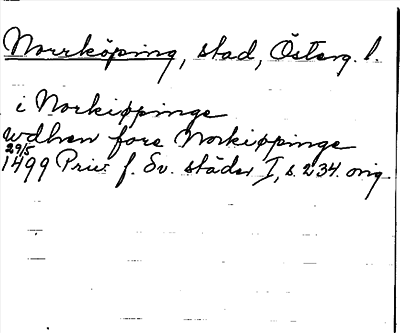 Norrköping, stad, Österg. l.
i Norkiøppinge
wdhen fore Norkiøppinge
29/5
1499 Priv. f. Sv. städer I, s. 234. orig